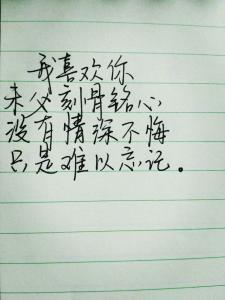 我喜欢你
未必刻骨铭心
没有情深不悔
只是难以忘记。